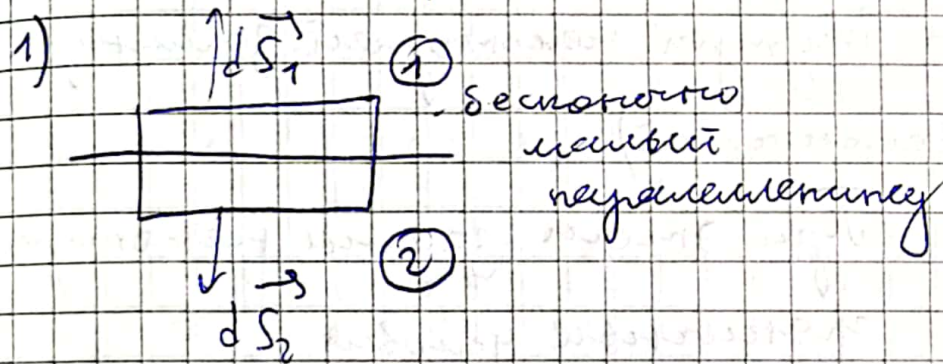 1)
dS₁
①
бесконечно
малый
параллелепипед
②
dS₂